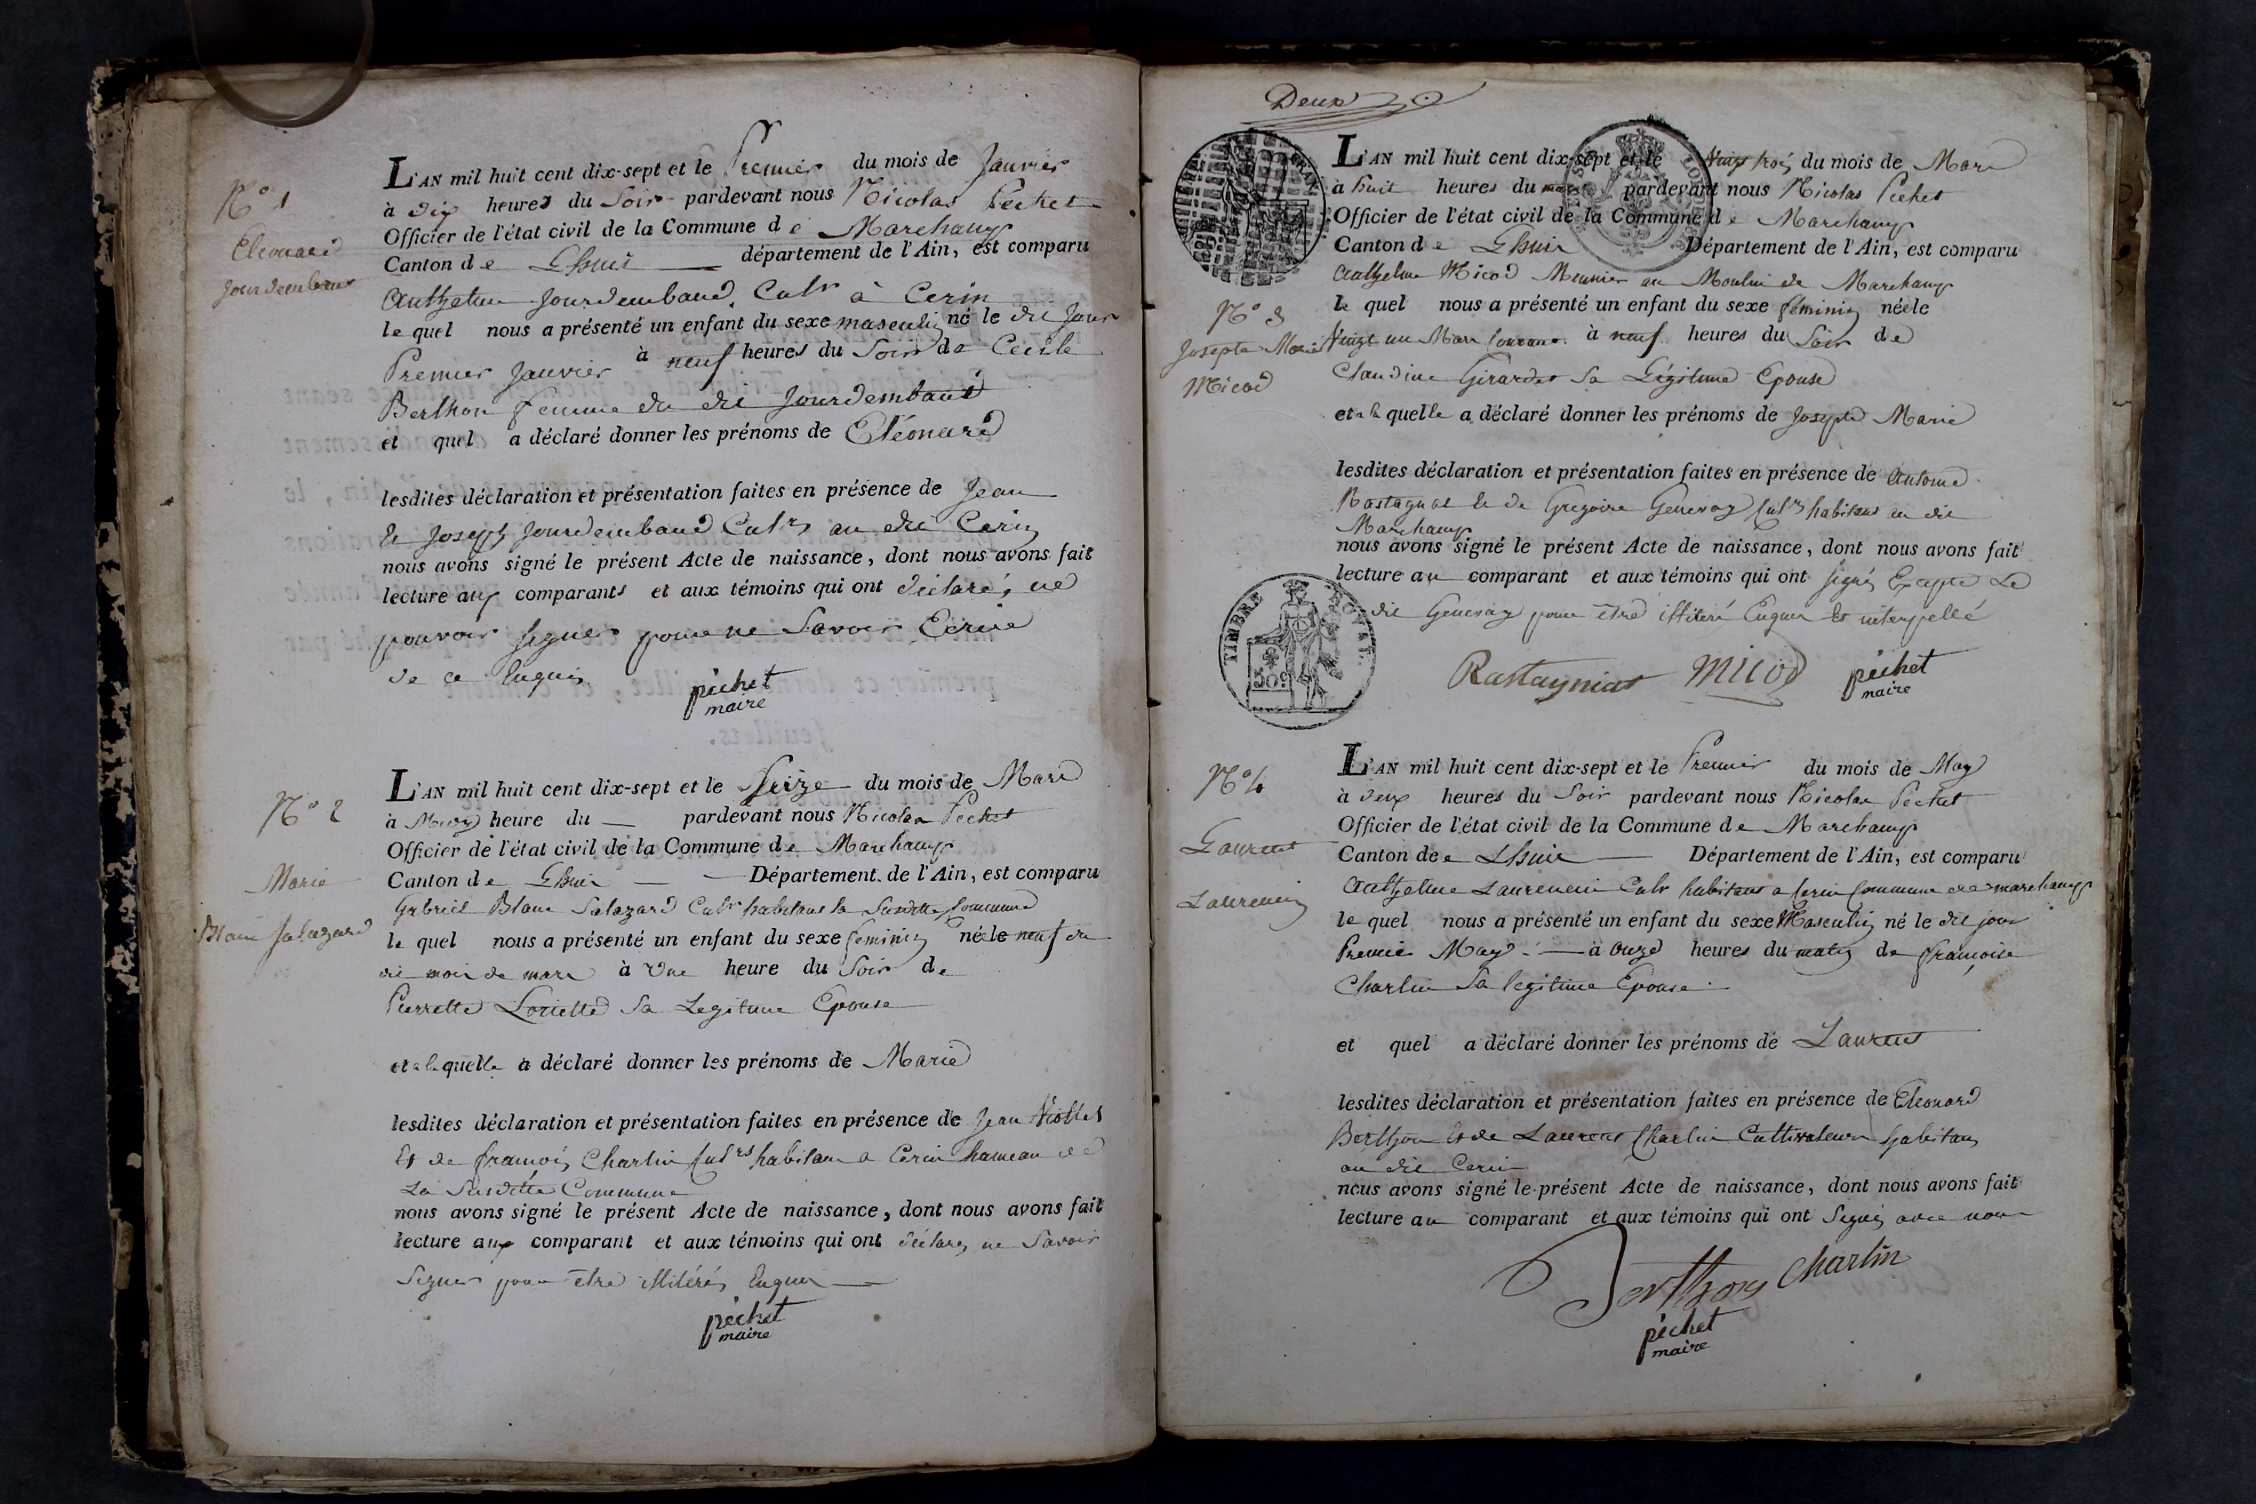 N.o 1
Eléonard
Jourdembaud
L'AN mil huit cent dix-sept et le Premier du mois de Janvier
à dix heures du Soir pardevant nous Nicolas Pechet
Officier de l'état civil de la Commune de Marchamp
Canton de Lhuis département de l'Ain, est comparu
Anthelme Jourdembaud Culr à Cerin
le quel nous a présenté un enfant du sexe masculin né le dit Jour
Premier Janvier à neuf heures du Soir de Cécile
Berthon femme du dit Jourdembaud
et quel a déclaré donner les prénoms de Eléonard
lesdites déclaration et présentation faites en présence de Jean
et Joseph Jourdembaud Culrs au dit Cerin
nous avons signé le présent Acte de naissance, dont nous avons fait
lecture aux comparants et aux témoins qui ont déclarés ne
pouvoir signer pour ne Savoir Ecrire
de ce Enquis
péchet
maire
N.o 2
Marie
Blanc Salazard
L'AN mil huit cent dix-sept et le Seize du mois de Mars
à Midy heure du pardevant nous Nicolas Pechet
Officier de l'état civil de la Commune de Marchamp
Canton de Lhuis Département de l'Ain, est comparu
Gabriel Blanc Salazard Culr habitant la Susditte Commune
le quel nous a présenté un enfant du sexe feminin née le neuf du
dit mois de mars à Une heure du Soir de
Pierrette Loriette Sa Legitime Epouse
et a la quelle a déclaré donner les prénoms de Marie
lesdites déclaration et présentation faites en présence de Jean Viollet
Et de françois Charlin Culrs habitans a Cerin hameau de
La Susditte Commune
nous avons signé le présent Acte de naissance, dont nous avons fait
lecture aux comparant et aux témoins qui ont déclarés ne Savoir
Signer pour être illitérés Enquis
péchet
maire
Deux
L'AN mil huit cent dix-sept et le Vingt trois du mois de Mars
à huit heures du matin pardevant nous Nicolas Pechet
Officier de l'état civil de la Commune de Marchamp
Canton de Lhuis Département de l'Ain, est comparu
Anthelme Micod Meunier au Moulin de Marchamp
N.o 3
Josepte Marie
Micod
le quel nous a présenté un enfant du sexe féminin née le
Vingt un Mars Courant à neuf heures du Soir de
Claudine Girardet Sa Légitime Epouse
et a la quelle a déclaré donner les prénoms de Josepte Marie
lesdites déclaration et présentation faites en présence de Antoine
Rastagnat et de Gregoire Genevay Culrs habitans au dit
Marchamp
nous avons signé le présent Acte de naissance, dont nous avons fait
lecture au comparant et aux témoins qui ont signés Excepté Le
dit Genevay pour être illiteré Enquis Et interpellé
TIMBRE ROYAL
50c
Rastagniat Micod péchet
maire
N.o 4
Laurent
Laurencin
L'AN mil huit cent dix-sept et le Premier du mois de May
à deux heures du Soir pardevant nous Nicolas Pechet
Officier de l'état civil de la Commune de Marchamp
Canton de Lhuis Département de l'Ain, est comparu
Anthelme Laurencin Culr habitant a Cerin Commune de marchamp
le quel nous a présenté un enfant du sexe Masculin né le dit jour
Premier May à Onze heures du matin de françoise
Charlin Sa legitime Epouse
et quel a déclaré donner les prénoms de Laurent
lesdites déclaration et présentation faites en présence de Eléonard
Berthon Et de Laurent Charlin Cultivateurs habitans
au dit Cerin
nous avons signé le présent Acte de naissance, dont nous avons fait
lecture au comparant et aux témoins qui ont Signés avec nous
Berthon Charlin
péchet
maire